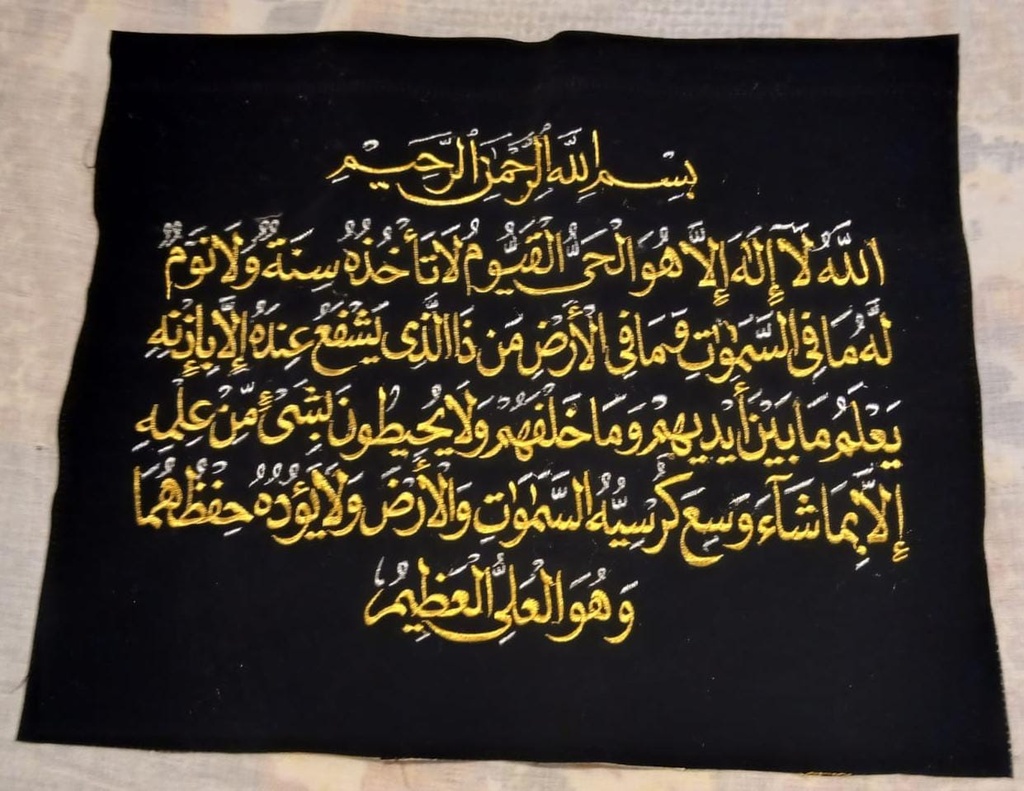 بِسْمِ اللَّهِ الرَّحْمَٰنِ الرَّحِيمِ
اللَّهُ لَا إِلَٰهَ إِلَّا هُوَ الْحَيُّ الْقَيُّومُ لَا تَأْخُذُهُ سِنَةٌ وَلَا نَوْمٌ
لَّهُ مَا فِي السَّمَٰوَٰتِ وَمَا فِي الْأَرْضِ مَن ذَا الَّذِي يَشْفَعُ عِندَهُ إِلَّا بِإِذْنِهِ
يَعْلَمُ مَا بَيْنَ أَيْدِيهِمْ وَمَا خَلْفَهُمْ وَلَا يُحِيطُونَ بِشَيْءٍ مِّنْ عِلْمِهِ
إِلَّا بِمَا شَآءَ وَسِعَ كُرْسِيُّهُ السَّمَٰوَٰتِ وَالْأَرْضَ وَلَا يَؤُدُهُ حِفْظُهُمَا
وَهُوَ الْعَلِيُّ الْعَظِيمُ